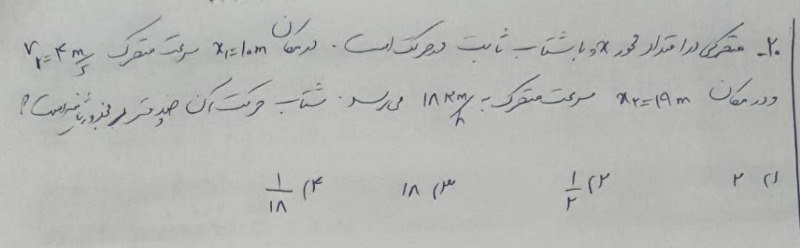 ۲۰- متحرکی در امتداد محور x و با شتاب ثابت در حرکت است. در مکان x₁=۱۰m سرعت متحرک v₁=۴ m/s
و در مکان x₂=۱۹m سرعت متحرک به ۱۸ km/h می‌رسد. شتاب حرکت آن چند متر بر مجذور ثانیه است؟
۱) ۲ ۲) ۱/۲ ۳) ۱۸ ۴) ۱/۱۸